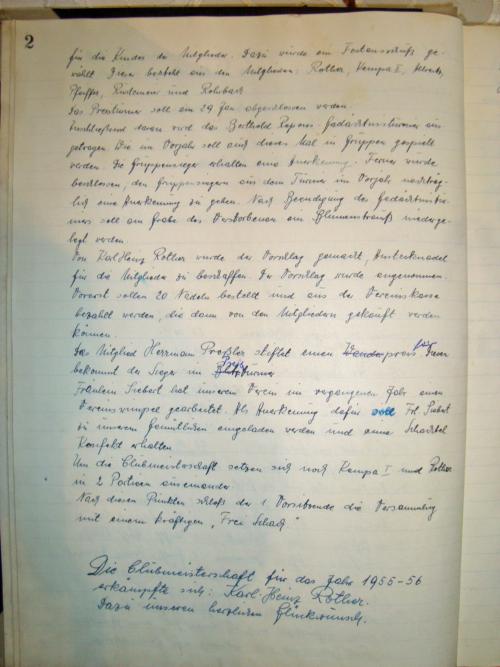 2
für die Kinder der Mitglieder. Dazu wurde ein Festausschuß ge-
wählt. Dieser besteht aus den Mitgliedern: Rother, Kempa I,
Pfeiffer, und Rohrbach.
Das Preisturnier soll am 29 Jan. abgeschlossen werden.
Anschließend daran wird das Berthold Gedächtnisturnier aus-
getragen. Wie im Vorjahr soll auch dieses Mal in Gruppen gespielt
werden. Die Gruppensieger erhalten eine Anerkennung. Ferner wurde
beschlossen, den Gruppensiegern aus dem Turnier im Vorjahr nachträg-
lich eine Anerkennung zu geben. Nach Beendigung des Gedächtnistur-
niers soll am Grabe des Verstorbenen ein Blumenstrauß niederge-
legt werden.
Von Karl-Heinz Rother wurde der Vorschlag gemacht, Anstecknadel
für die Mitglieder zu beschaffen. Der Vorschlag wurde angenommen.
Vorerst sollen 20 Nadeln bestellt und aus der Vereinskasse
bezahlt werden, die dann von den Mitgliedern gekauft werden
können.
Das Mitglied Herrmann Preßler stiftet einen Wanderpreis. Diesen
bekommt der Sieger im Preisturnier
Fräulein Siebert hat unserem Verein im vergangenen Jahr einen
Vereinswimpel gearbeitet. Als Anerkennung dafür soll Frl. Siebert
zu unserem Gemütlichen eingeladen werden und eine Schachtel
Konfekt erhalten.
Um die Clubmeisterschaft setzen sich noch Kempa I und Rother
in 2 Partieen auseinander.
Nach diesen Punkten schloß der 1. Vorsitzende die Versammlung
mit einem kräftigen „Frei Schach“
Die Clubmeisterschaft für das Jahr 1955-56
erkämpfte sich: Karl-Heinz Rother.
Dazu unseren herzlichen Glückwunsch.